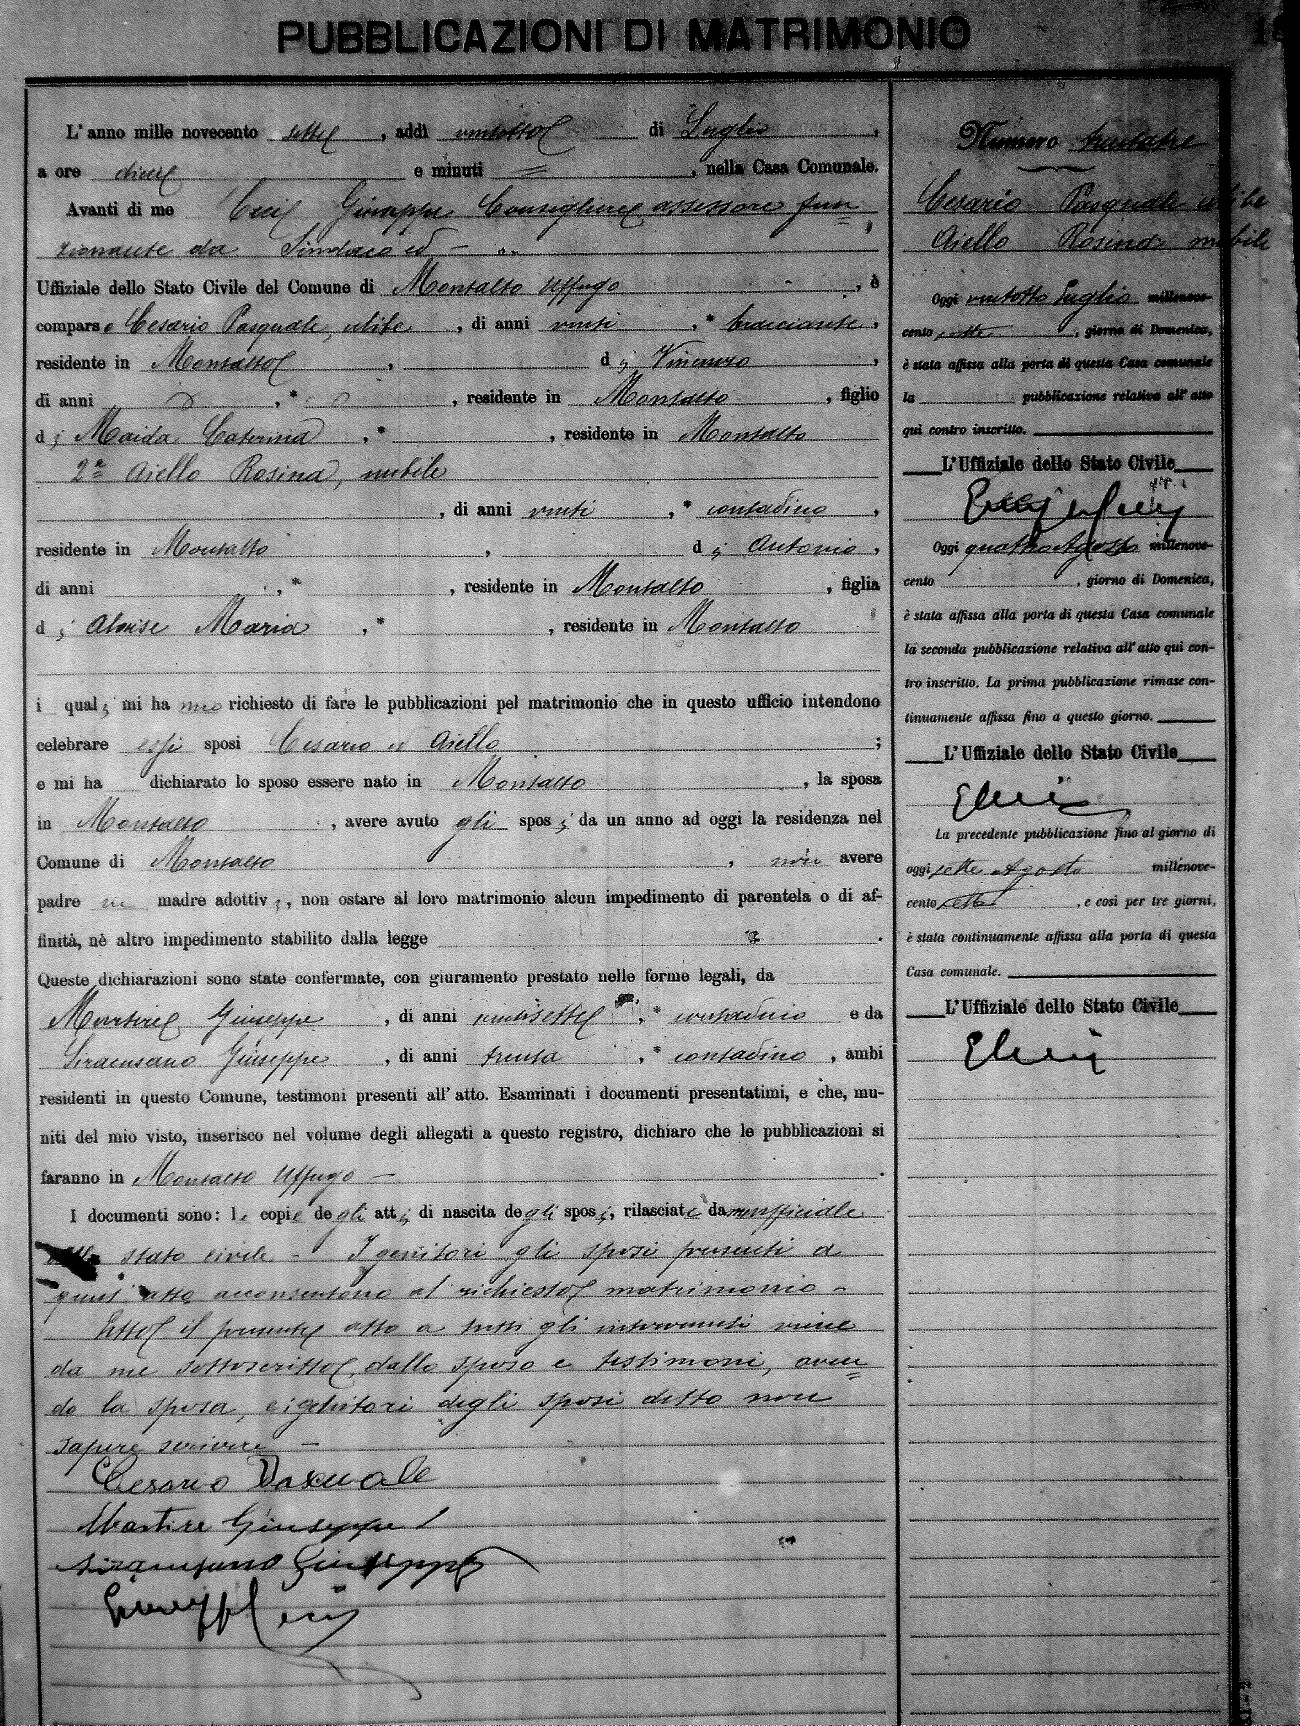 PUBBLICAZIONI DI MATRIMONIO
L'anno mille novecento sette, addì ventotto di Luglio,
a ore dieci e minuti =, nella Casa Comunale.
Avanti di me Giuseppe Consigliere assessore fun=
zionante da Sindaco ed
Uffiziale dello Stato Civile del Comune di Montalto Uffugo, è
compars o Cesario Pasquale, celibe, di anni venti, * bracciante,
residente in Montalto, di Vincenzo,
di anni , * , residente in Montalto, figlio
di Maida Caterina, * , residente in Montalto
2° Aiello Rosina, nubile
, di anni venti, * contadina,
residente in Montalto, di Antonio,
di anni , * , residente in Montalto, figlia
di Aloise Maria, * , residente in Montalto
i quali mi ha nno richiesto di fare le pubblicazioni pel matrimonio che in questo ufficio intendono
celebrare essi sposi Cesario e Aiello ;
e mi ha dichiarato lo sposo essere nato in Montalto, la sposa
in Montalto, avere avuto gli sposi da un anno ad oggi la residenza nel
Comune di Montalto, non avere
padre nè madre adottivi, non ostare al loro matrimonio alcun impedimento di parentela o di af-
finità, nè altro impedimento stabilito dalla legge .
Queste dichiarazioni sono state confermate, con giuramento prestato nelle forme legali, da
Martire Giuseppe, di anni ventisette, * contadino e da
Siracusano Giuseppe, di anni trenta, * contadino, ambi
residenti in questo Comune, testimoni presenti all'atto. Esaminati i documenti presentatimi, e che, mu-
niti del mio visto, inserisco nel volume degli allegati a questo registro, dichiaro che le pubblicazioni si
faranno in Montalto Uffugo — .
I documenti sono: le copie degli atti di nascita degli sposi, rilasciate da me ufficiale
dello stato civile - I genitori gli sposi presenti a
quest'atto acconsentono al richiesto matrimonio -
Letto il presente atto a tutti gli intervenuti viene
da me sottoscritto, dallo sposo e testimoni, aven=
do la sposa, e i genitori degli sposi detto non
sapere scrivere —
Cesario Pascuale
Martire Giuseppe
Siracusano Giuseppe
Numero trentatre
Cesario Pasquale celibe
Aiello Rosina nubile
Oggi ventotto Luglio millenove-
cento sette, giorno di Domenica,
è stata affissa alla porta di questa Casa comunale
la pubblicazione relativa all'atto
qui contro inscritto.
L'Uffiziale dello Stato Civile
Oggi quattro Agosto millenove-
cento , giorno di Domenica,
è stata affissa alla porta di questa Casa comunale
la seconda pubblicazione relativa all'atto qui con-
tro inscritto. La prima pubblicazione rimase con-
tinuamente affissa fino a questo giorno.
L'Uffiziale dello Stato Civile
La precedente pubblicazione fino al giorno di
oggi sette Agosto millenove-
cento sette, e così per tre giorni,
è stata continuamente affissa alla porta di questa
Casa comunale.
L'Uffiziale dello Stato Civile